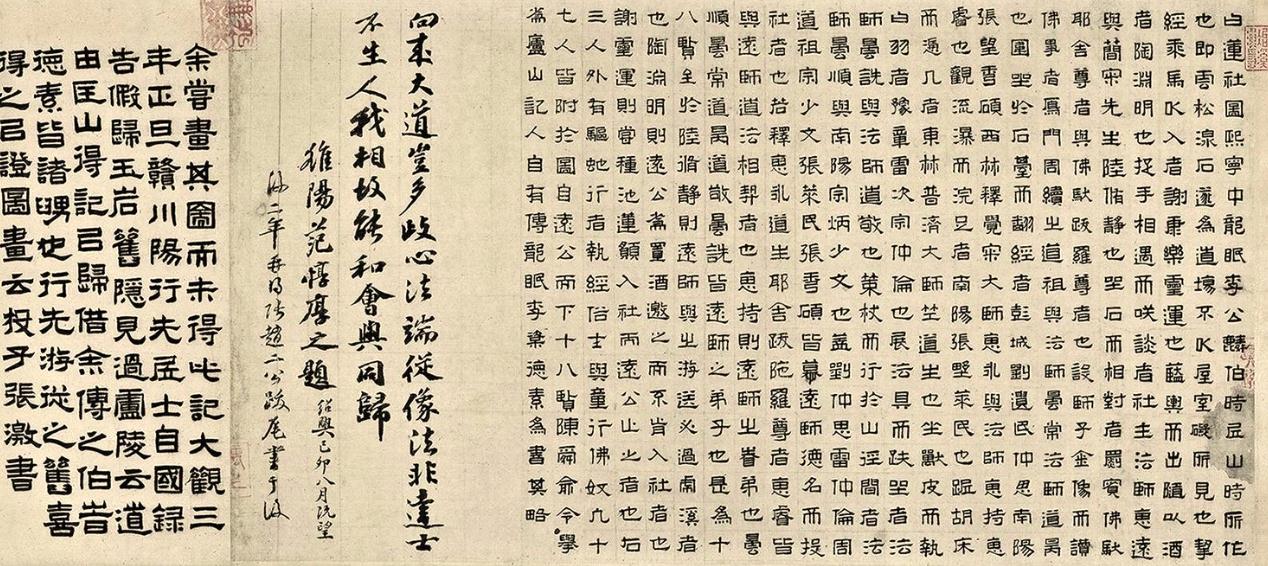 白蓮社圖熙寧中龍眠李公麟伯時丘山時所作
也即雲松湶石邃為道場不以屋室礙所見也挈
經乘馬以入者謝康樂靈運也藍輿而出隨以酒
者陶淵明也捉手相遇而咲談者社主法師惠遠
與簡宗先生陸脩靜也坐石而相對者罽賓佛馱
耶舍尊者與佛馱跋羅尊者也設師子金像而讚
佛事者鴈門周續之道祖與法師曇常法師道昺
也圍坐於石臺而翻經者彭城劉遺民仲思南陽
張埜香碩西林釋覺宗大師惠永與法師惠持惠
睿也觀流瀑而浣足者南陽張埜萊民也踞胡床
而憑几者東林普濟大師竺道生也坐獸皮而執
白羽者豫章雷次宗仲倫也展法具而趺坐者法
師曇詵與法師道敬也策杖而行於山徑間者法
師曇順與南陽宗炳少文也蓋劉仲思雷仲倫周
道祖宗少文張萊民張香碩皆慕遠師德名而投
社者也若釋惠永道生耶舍跋陁羅尊者惠睿皆
與遠師道法相契者也惠持則遠師之眷弟也曇
順曇常道昺道敬曇詵皆遠師之弟子也是為十
八賢至於陸脩靜則遠師與之游送必過虎溪者
也陶淵明則遠公為置酒邀之而不肯入社者也
謝靈運則嘗種池蓮願入社而遠公止之者也右
三人外有驅虵行者執經俗士與童行佛奴凡十
七人皆附於圖自遠公而下十八賢陳舜俞令舉
為廬山記人自有傳龍眠李粢德素為書其略
向來大道豈多歧心法端從像法非達士
不生人我相故能和會與同歸
雒陽范惇厚之題 紹興己卯八月既望
二年 張趙二公跋尾書于後
余嘗畫其圖而未得此記大觀三
年正旦贛川陽行先孟士自國錄
告假歸玉岩舊隱見過廬陵云道
由匡山得記以歸借余傳之伯時
德素皆諸甥也行先游從之舊喜
得之以證圖畫云投子張激書